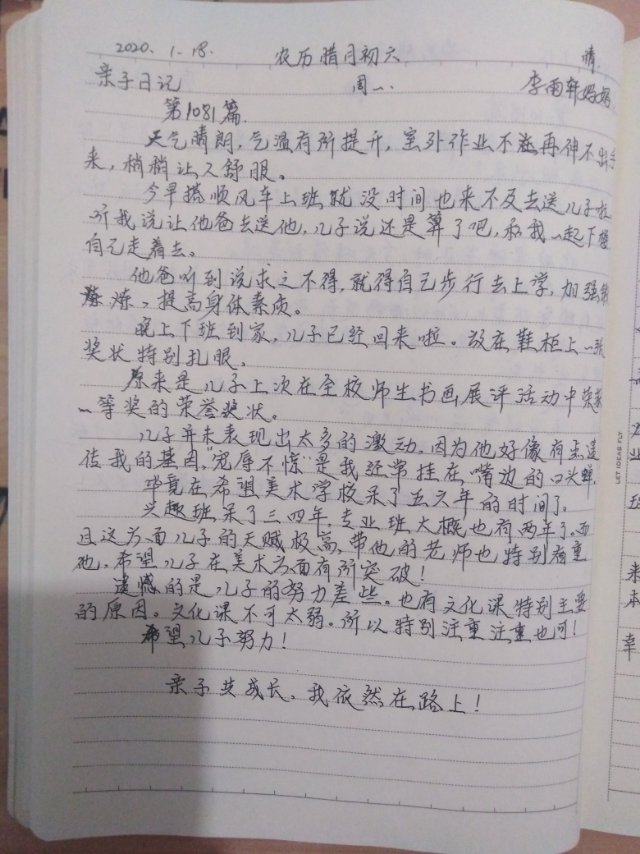 2020.1.18. 农历腊月初六 晴
亲子日记 周一. 李雨轩妈妈
第1081篇
天气晴朗，气温有所提升，室外作业不 再伸不出手
来，稍稍让人舒服。
今早搭顺风车上班就没时间也来不及去送儿子
听我说让他爸去送他，儿子说还是算了吧，和我一起下楼
自己走着去。
他爸听到说求之不得，就得自己步行去上学，加强锻
炼、提高身体素质。
晚上下班到家，儿子已经回来啦。放在鞋柜上一张
奖状特别扎眼。
原来是儿子上次在全校师生书画展评活动中荣获
一等奖的荣誉奖状。
儿子并未表现出太多的激动，因为他好像有点遗
传我的基因，"宠辱不惊"是我经常挂在嘴边的口头禅，
毕竟在希望美术学校呆了五六年的时间了
兴趣班呆了三四年，专业班大概也有两年了。而
且这方面儿子的天赋极高，带他的老师也特别看重
他，希望儿子在美术方面有所突破！
遗憾的是儿子的努力差些。也有文化课特别主要
的原因。文化课不可太弱。所以特别注重注重也可！
希望儿子努力！
亲子共成长，我依然在路上！